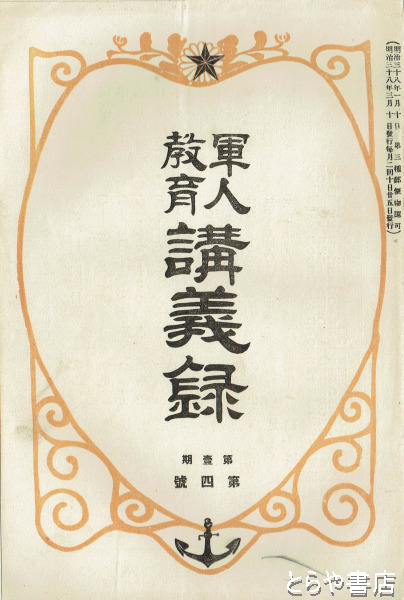 (明治三十八年一月十日 第三種郵便物認可)
(明治三十八年三月十日發行毎月二回十日廿五日發行)
軍人
教育
講義録
第壹期
第四號
とらや書店